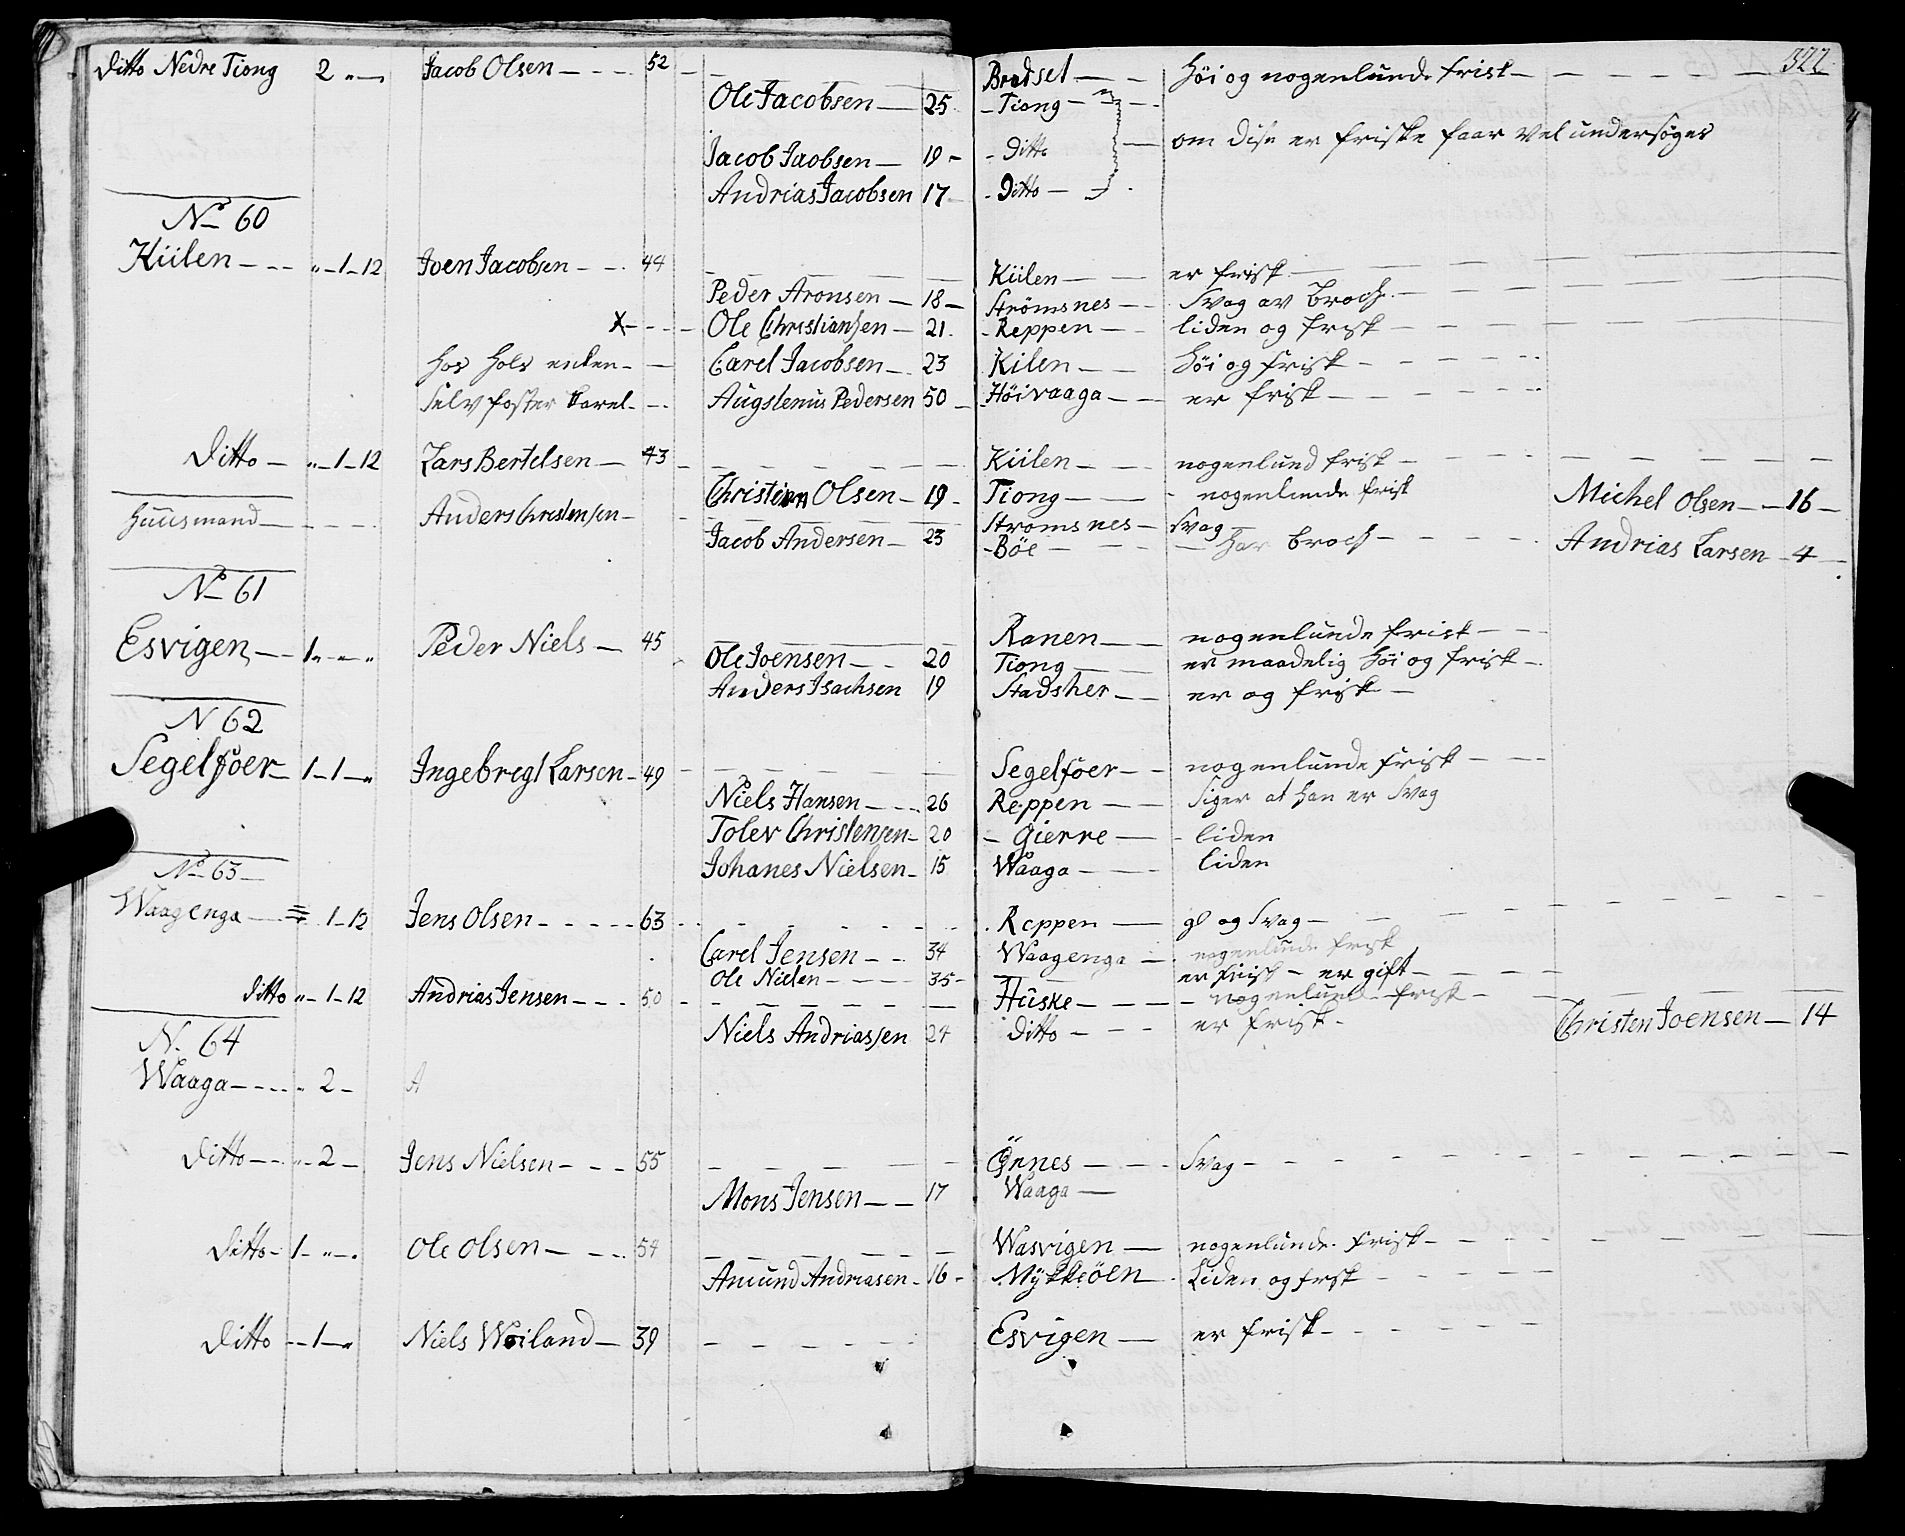 322
Ditto Nedre Tiong 2 „ — Jacob Olsen — 52 — Bredset — Höi og nogenlunde frisk —
Ole Jacobsen — 25 - Tiong —
Jacob Jaobsen — 19 - Ditto — om dise er friske faar vel undersöges
Andrias Jacobsen 17 - Ditto —
No 60
Kiilen — „ - 1 - 12 Joen Jacobsen — 44 — Kiilen — er frisk —
Peder Aronsen — 18 - Strömsnes — Svag av Broch —
X — Ole Christiansen — 21 - Reppen — liden og frisk —
hos hols enken — Carel Jacobsen — 23 Kilen — höi og frisk —
Selv foster Karel — Augstenus Pedersen 50 - Höivaaga — er frisk —
Ditto — „ - 1 - 12 Lars Bertelsen — 43 — Kiilen — nogenlund frisk —
Christian Olsen — 19 - Tiong — nogenlunde frisk Michel Olsen — 16 —
Huusmand — Anders Christensen — Stromsnes — Svag —
Jacob Andersen — 23 - Böe — har broch — Andrias Larsen - 4 —
No 61
Esvigen — 1 - „ - „ Peder Niels — 45 Ranen — nogenlunde frisk —
Ole Joensen — 20 Tiong — er maadelig höi og frisk —
Anders Isachsen 19 Stadsher — er og frisk —
N 62
Segelfoer — 1 - 1 - „ Ingebregt Larsen - 49 — Segelfoer — nogenlunde frisk —
Niels Hansen — 26 Reppen — Siger at han er Svag
Tolev Christensen - 20 - Gierre — liden
Johanes Nielsen - 15 Waaga — liden
No 63
Waagenga — 1 - 12 Jens Olsen — 63 — Reppen — gl og Svag —
Carel Jensen — 34 Waagenga — nogenlunde frisk
Ole Nielen — 35 - er friisk - er gift —
Ditto „ - 1 - 12 Andrias Jensen — 50 — Huske — nogenlunde frisk —
Niels Andriassen 24 Ditto — er frisk - Christen Joensen — 14
N. 64
Waaga — „ 2 - A
Ditto — „ - 2 - Jens Nielsen — 55 — Önnes — Svag —
Mons Jensen — 17 Waaga —
Ditto - 1 - „ - Ole Olsen — 54 — Wasvigen — nogenlunde frisk —
Amund Andriasen - 16 - Mykkeöen — Liden og frsk —
Ditto — 1 — „ Niels Weiland — 39 — Esvigen — er frisk —